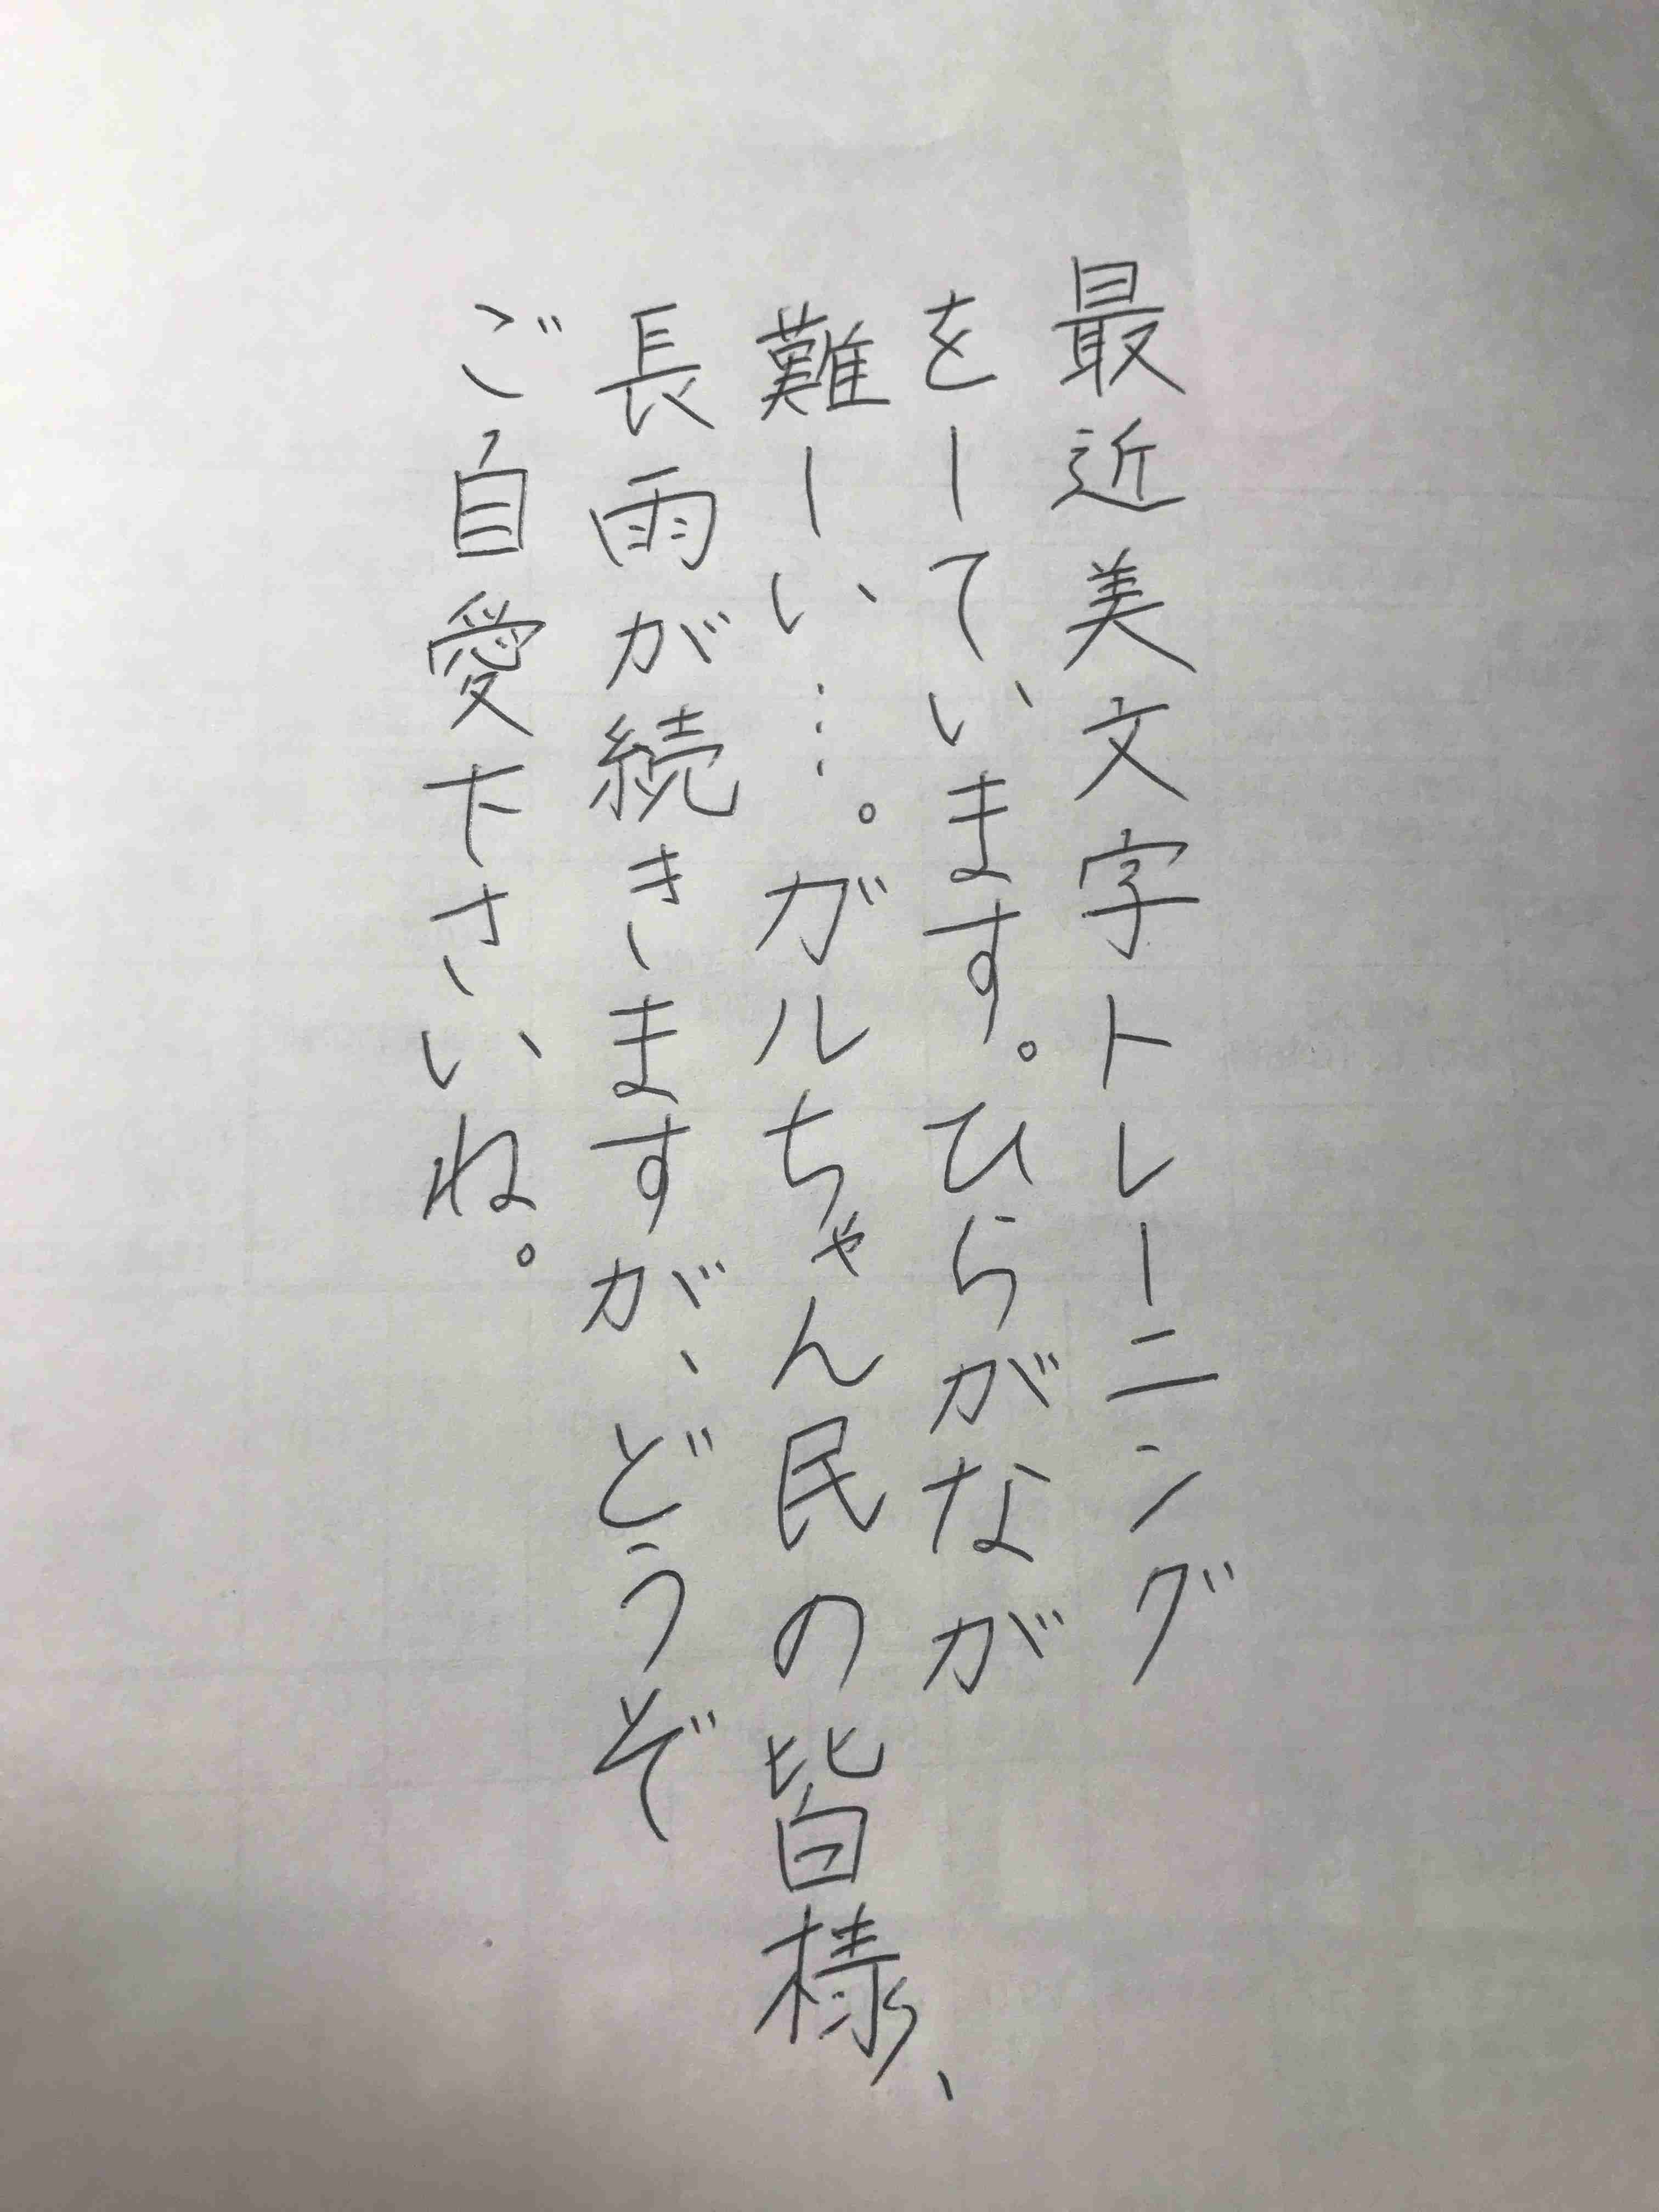 最近美文字トレーニング
をしています。ひらがなが
難しい…。ガルちゃん民の皆様、
長雨が続きますが、どうぞ
ご自愛下さいね。